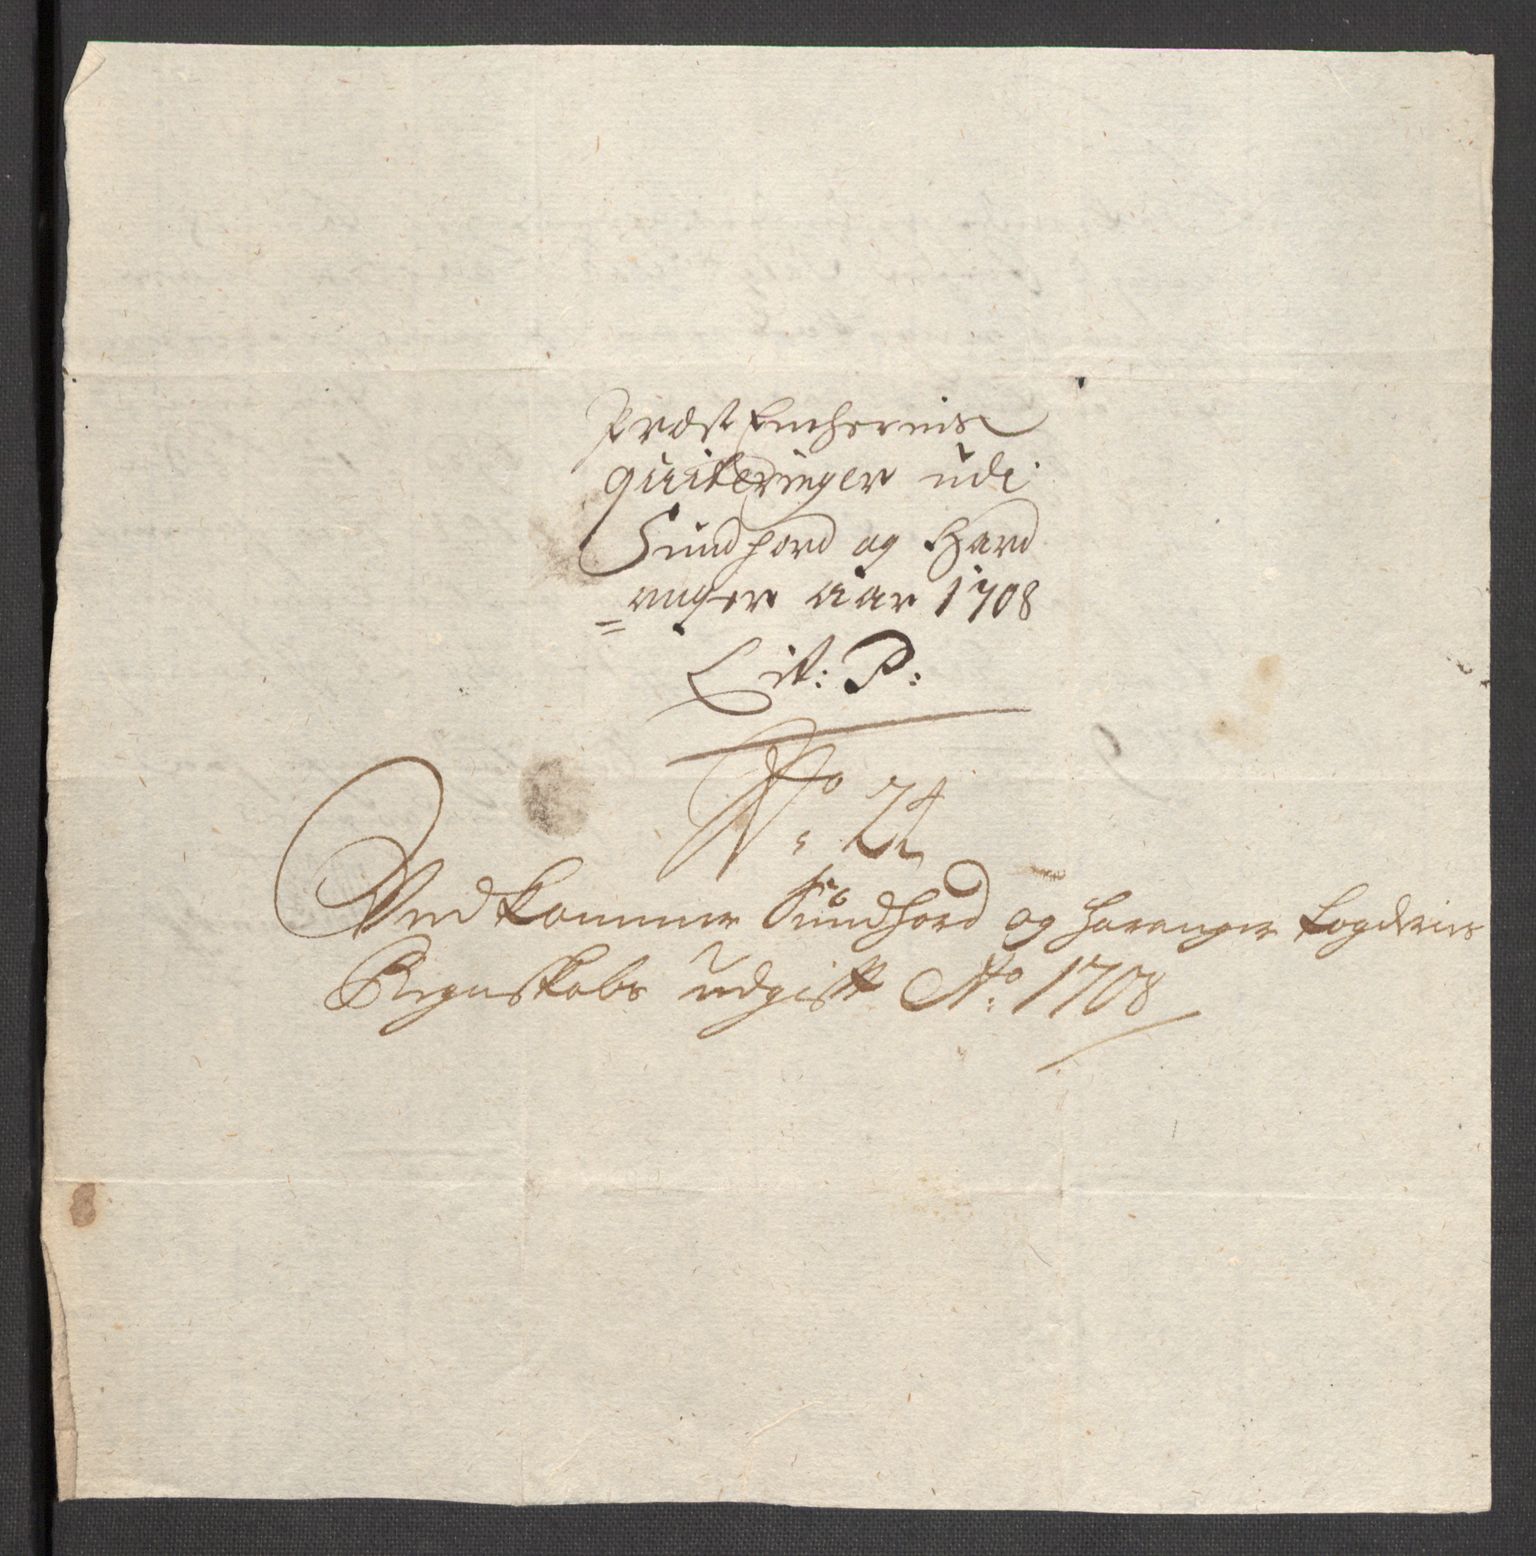 Præst Enchernis
quiteringer udi
Sundhord og Hard
=anger aar 1708
Lit: P:
No: 24
Vedkommer Sundhord og Haranger fogderies
Regnskabs udgift Ao: 1708